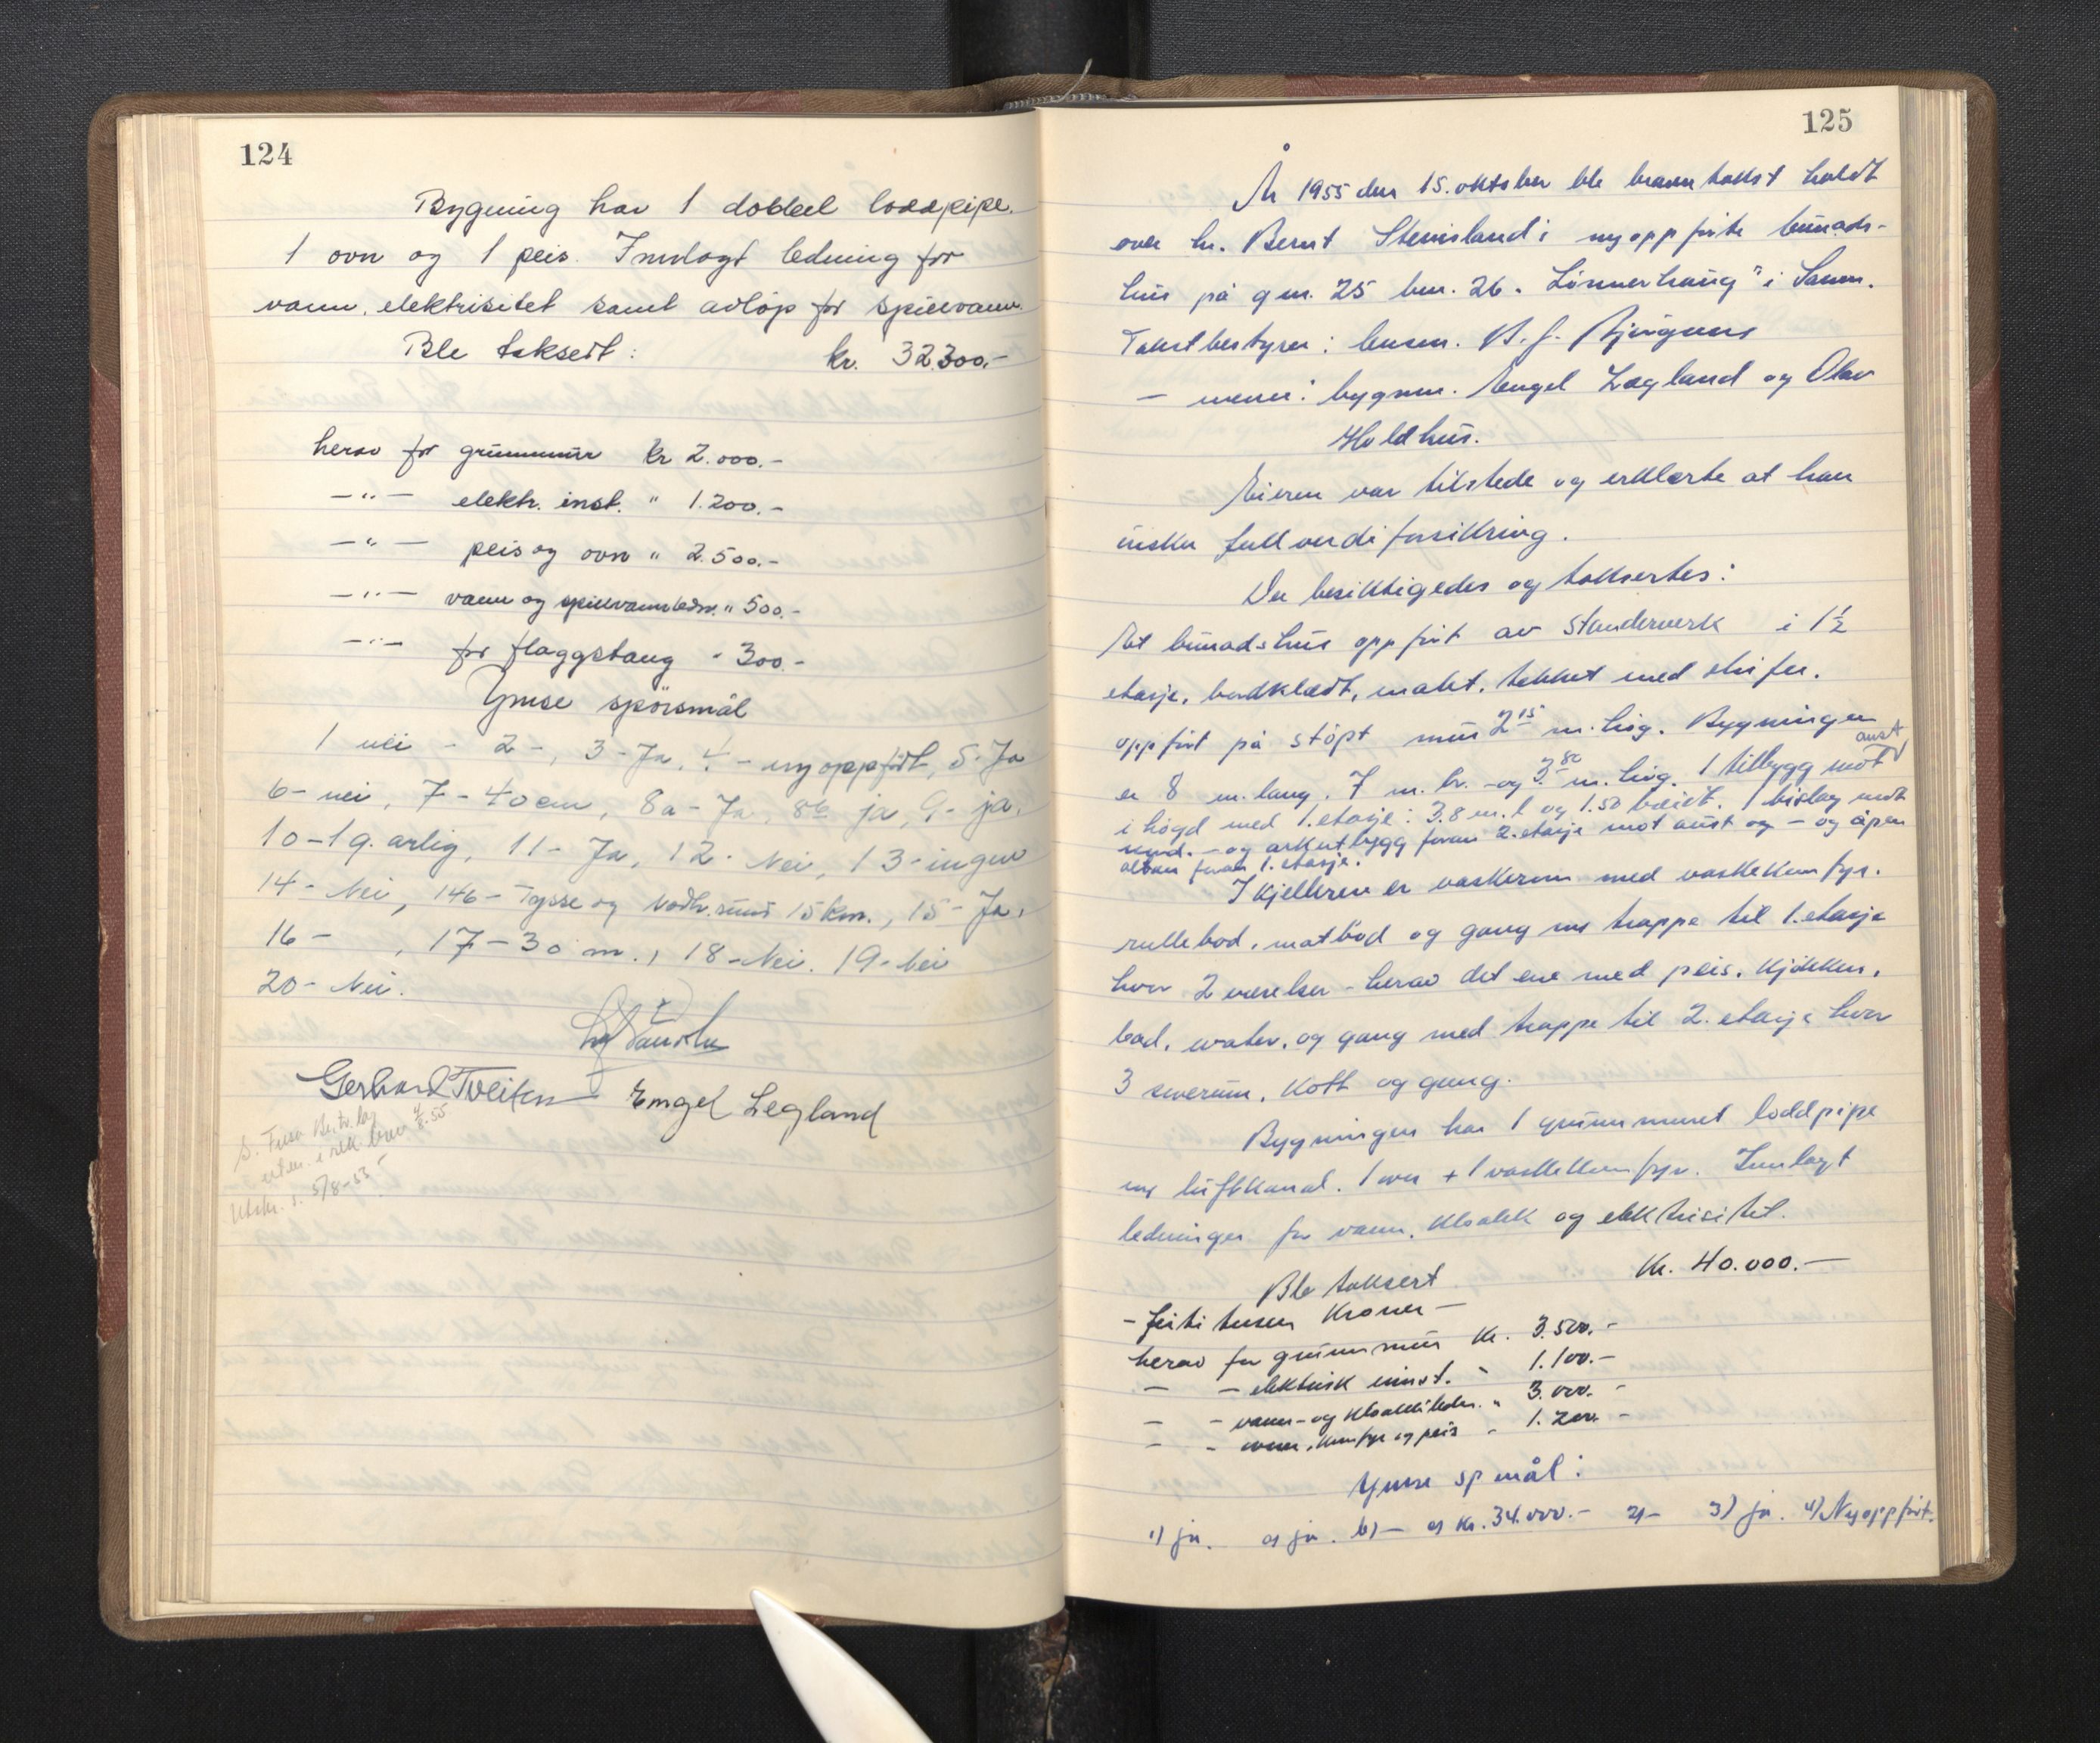 124
Bygning har 1 dobbel loddpipe.
1 ovn og 1 peis. Innlagt ledning for
vann, elektrisitet samt avløp for spillvann.
Ble taksert: kr. 32.300.-
herav for grunnmur kr 2.000.-
-"- elektr. inst. " 1.200.-
-"- peis og ovn " 2.500.-
-"- vann og spillvannledn. " 500.-
-"- for flaggstang " 300.-
Ymse spørsmål
1 nei - 2 -, 3 - Ja, 4 - ny oppført, 5 - Ja
6 - nei, 7 - 40 cm, 8a - Ja, 8b ja, 9 - ja,
10 - 1 g. årlig, 11 - Ja, 12 - Nei, 13 - ingen
14 - Nei, 14b - Tysse og 15 km., 15 - Ja,
16 - , 17 - 30 m., 18 - Nei. 19 - Nei
20 - Nei.
Gerhard Tveiten Engel Legland
S. Fusa
i rek. brev 4/8.55
Utskr. s. 5/8-53
125
År 1955 den 15. oktober ble branntakst holdt
over hr. Bernt Steinsland i nyoppførte bunads-
hus på gnr. 25 bnr. 26 "Lönnerhaug" i Samn.
Takstbestyrer: lensm.
- menn: bygnm. Engel Legland og Olav
Holdhus.
Eieren var tilstede og erklærte at han
ønsker fullverdiforsikring.
Der besiktigedes og taksertes:
Et bunadshus oppført av standerverk i 1½
etasje, bordklædt, malt, tekket med skifer,
oppført på støpt mur 2 15 m. høg. Bygningen
er 8 m. lang, 7 m. br. - og 3 80 m. høg. 1 tilbygg mot aust
i høgd med 1. etasje: 3.8 m. l og 1.50 breidt. 1 bislag mot
nord. - og arkutbygg foran 2. etasje mot aust og - og åpen
altan foran 1. etasje.
I kjelleren er vaskerum med vaskekomfyr,
rullebod, matbod og gang m/ trappe til 1. etasje
hvor 2 værelser - herav det ene med peis, kjøkken,
bad, water, og gang med trappe til 2. etasje hvor
3 soverum, kott og gang.
Bygningen har 1 grunnmuret loddpipe
m/ luftkanal. 1 ovn + 1 vaskekomfyr. Innlagt
ledninger for vann, kloakk og elektrisitet.
Ble taksert Kr. 40.000.-
- førti tusen kroner -
herav for grunnmur kr. 3.500.-
- - elektrisk innst. " 1.100.-
- - vann- og kloakkledn. " 3.000.-
- - ovner, komfyr og peis " 1.200.-
Ymse sp mål:
1) ja. a) ja. b) - c) kr. 34.000.- 2) - 3) ja. 4) Nyoppført.